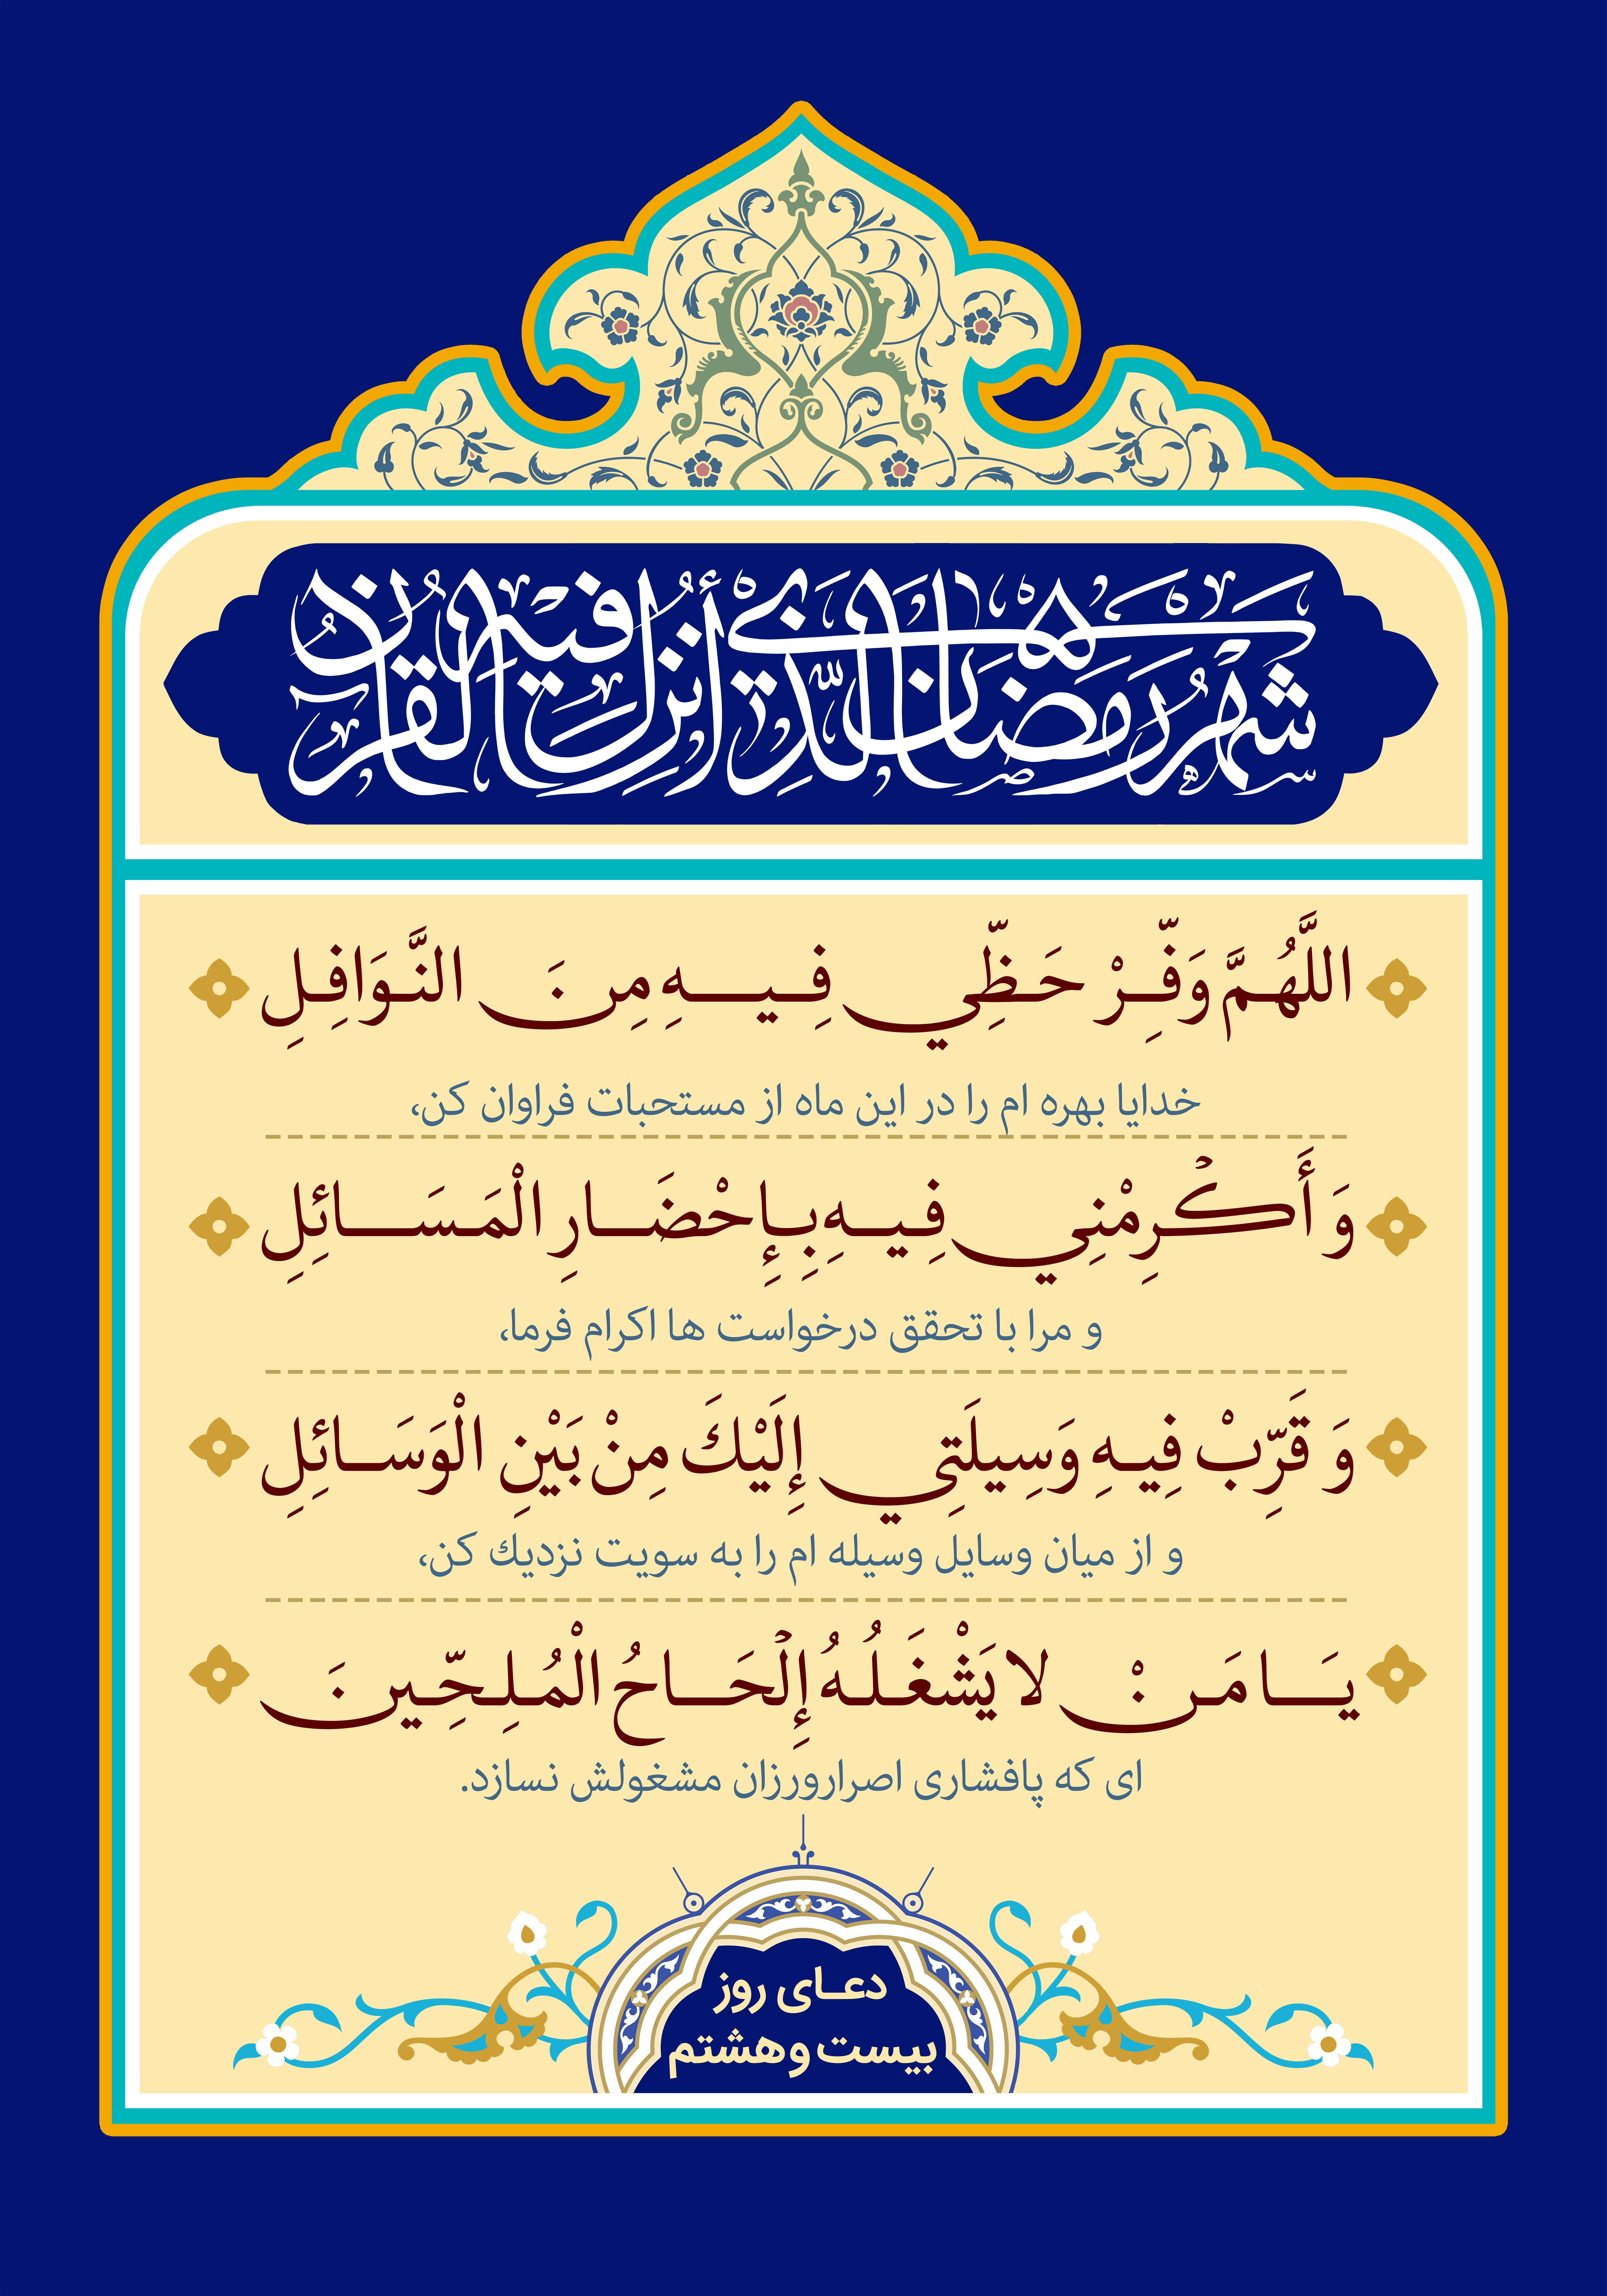 شَهْرُ رَمَضَانَ الَّذِي أُنْزِلَ فِيهِ الْقُرْآنُ
اللَّهُمَّ وَفِّرْ حَظِّي فِيهِ مِنَ النَّوَافِلِ
خدایا بهره ام را در این ماه از مستحبات فراوان کن،
وَ أَكْرِمْنِي فِيهِ بِإِحْضَارِ الْمَسَائِلِ
و مرا با تحقق درخواست ها اکرام فرما،
وَ قَرِّبْ فِيهِ وَسِيلَتِي إِلَيْكَ مِنْ بَيْنِ الْوَسَائِلِ
و از میان وسایل وسیله ام را به سویت نزدیك کن،
يَا مَنْ لا يَشْغَلُهُ إِلْحَاحُ الْمُلِحِّينَ
ای که پافشاری اصرارورزان مشغولش نسازد.
دعای روز
بیست وهشتم